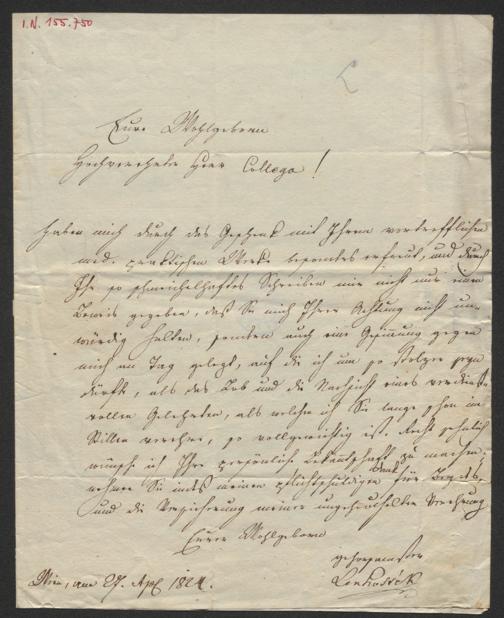 I.N. 155.750
Eure Wohlgeboren
Hochverehrter Herr Collega!
Haben mich durch das Geschenk mit Ihrem vortrefflichen
med. praktischen Werke besonders erfreut, und durch
Ihr so schmeichelhaftes Schreiben mir nicht nur einen
Beweis gegeben, daß Sie mich Ihrer Achtung nicht un-
würdig halten, sondern auch eine Gesinnung gegen
mich an Tag gelegt, auf die ich um so stolzer seyn
dürfte, als das Lob und die Nachsicht eines verdienst-
vollen Gelehrten, als welchen ich Sie lange schon im
Stillen verehre, so vollgewichtig ist. Recht sehnlich
wünsche ich Ihre persönliche Bekanntschaft zu machen;
nehmen Sie indeß meinen pflichtschuldigen Dank für
und die Versicherung meiner ungeheuchelten Verehrung
Eurer Wohlgeboren
gehorsamster
Lenhossék
Wien, am 27. Apl 1824.